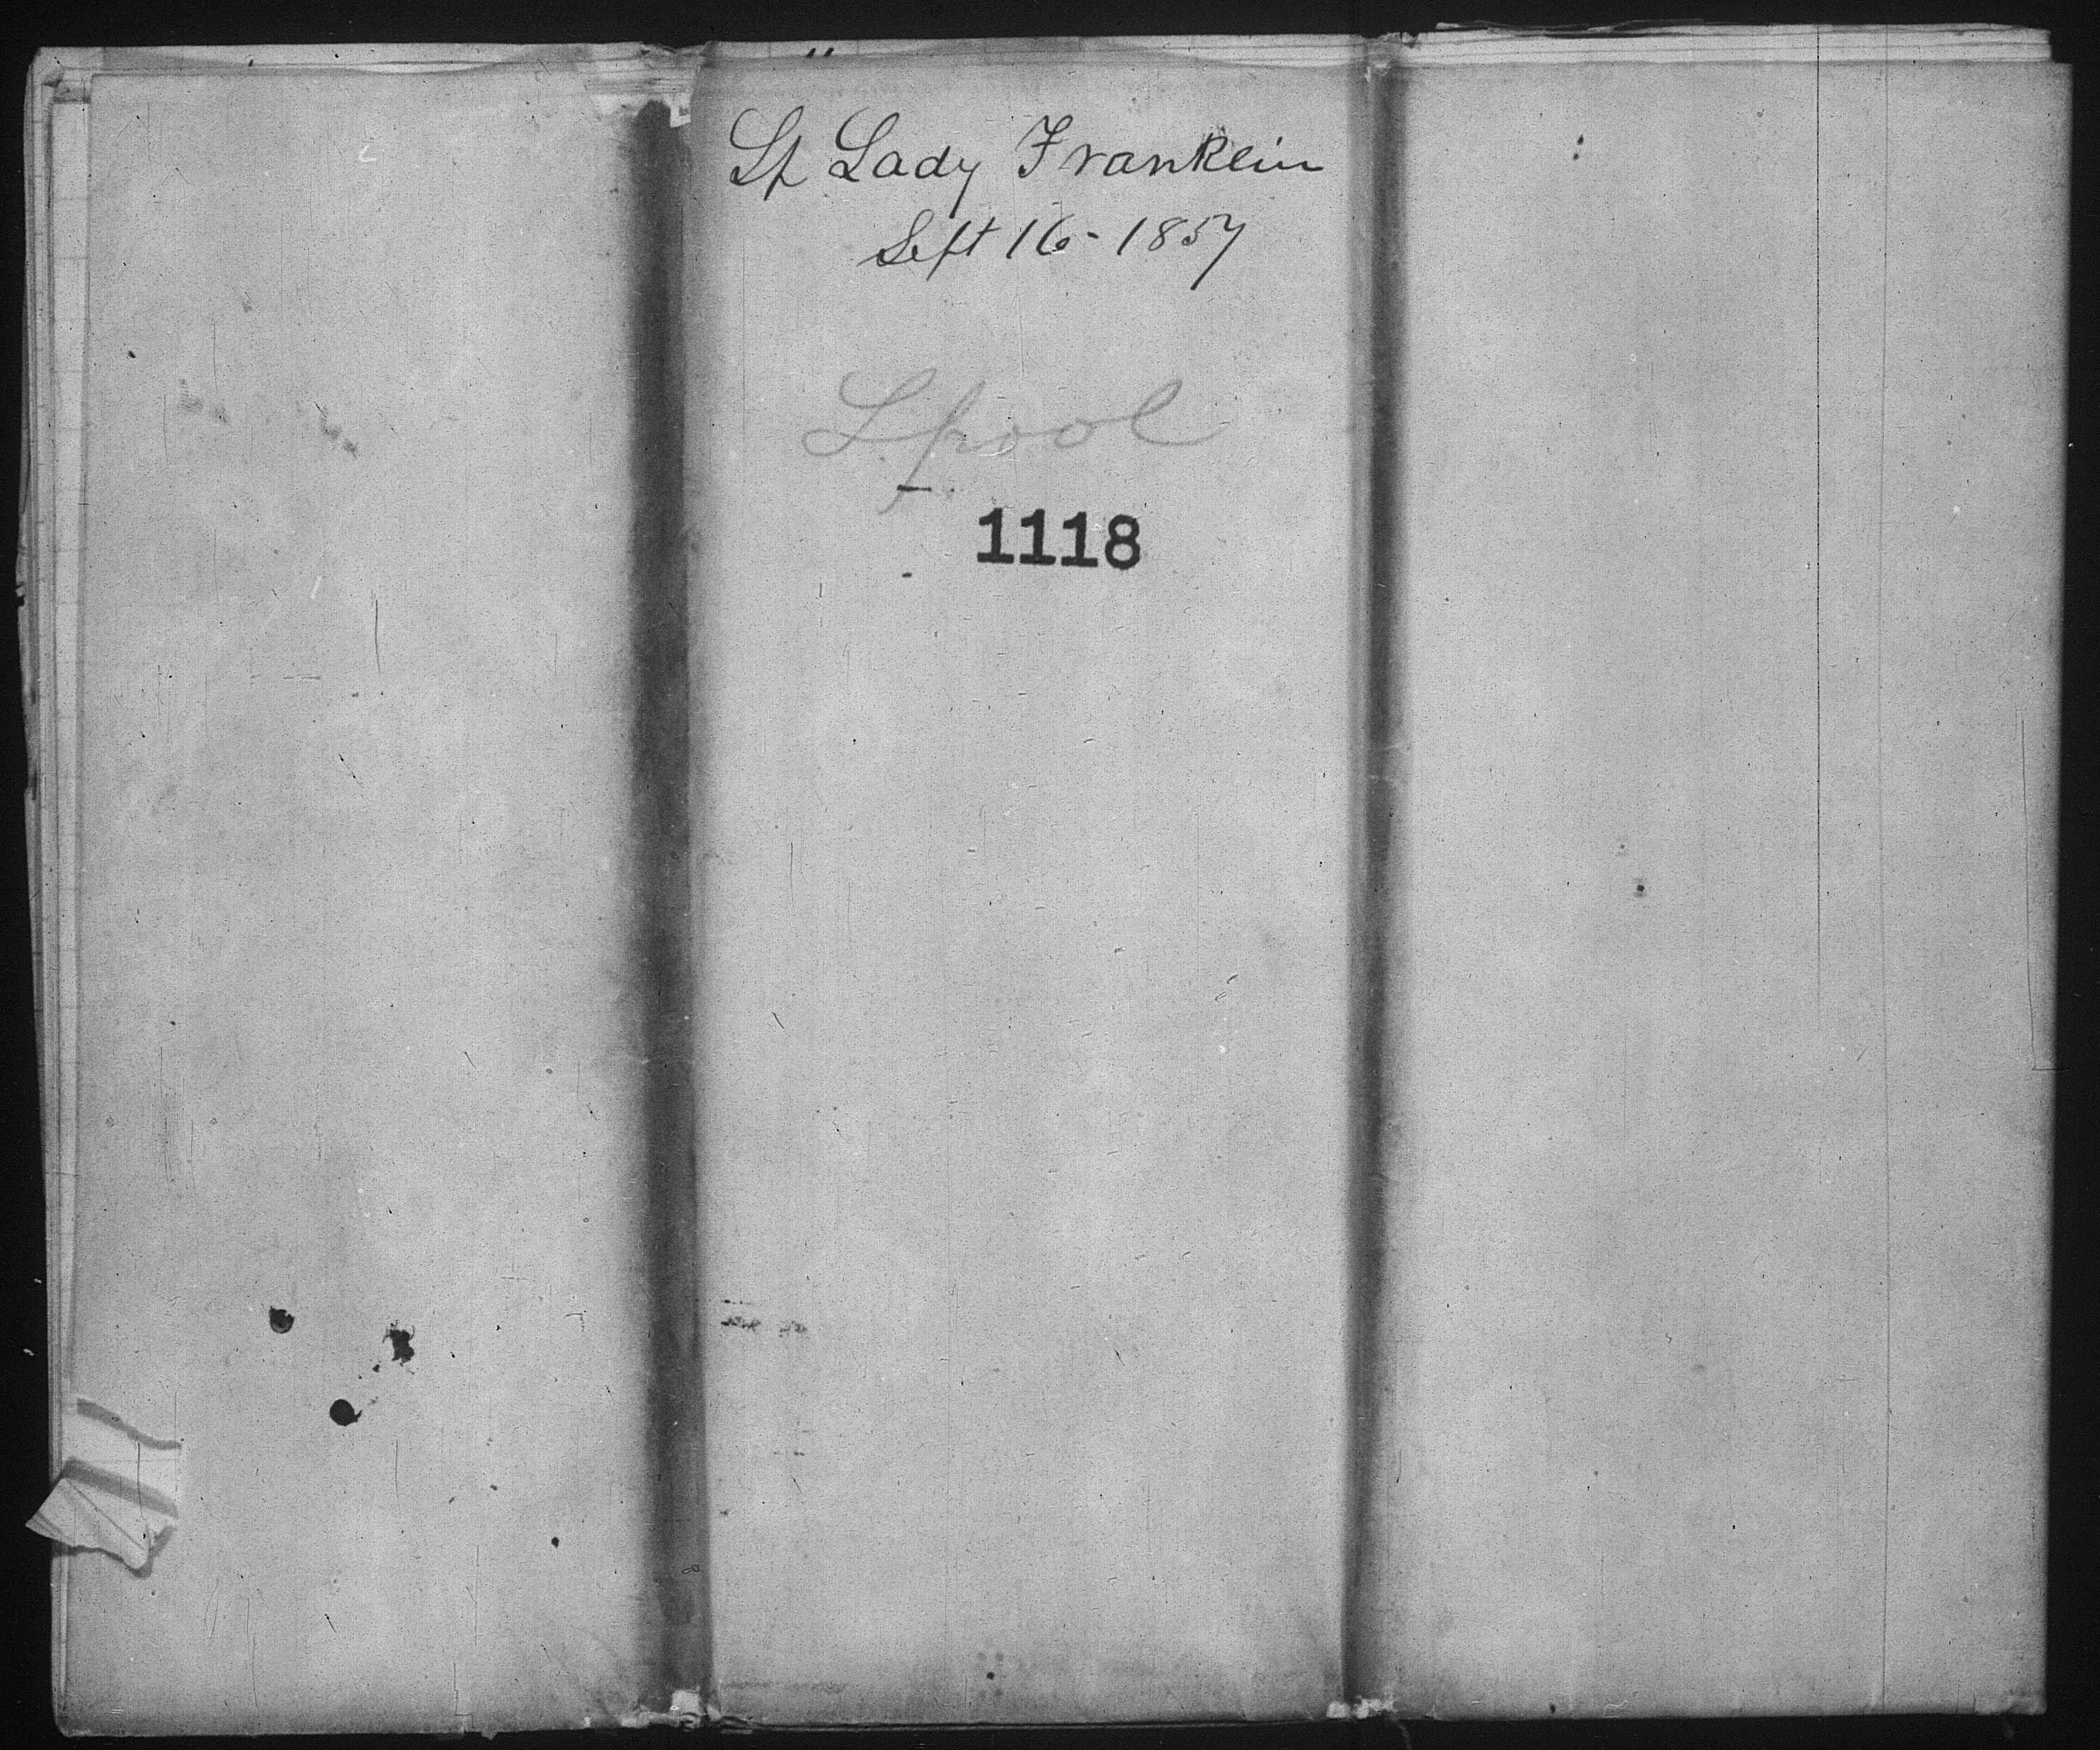 Sp Lady Franklin
Sept 16-1857
L.pool
1118